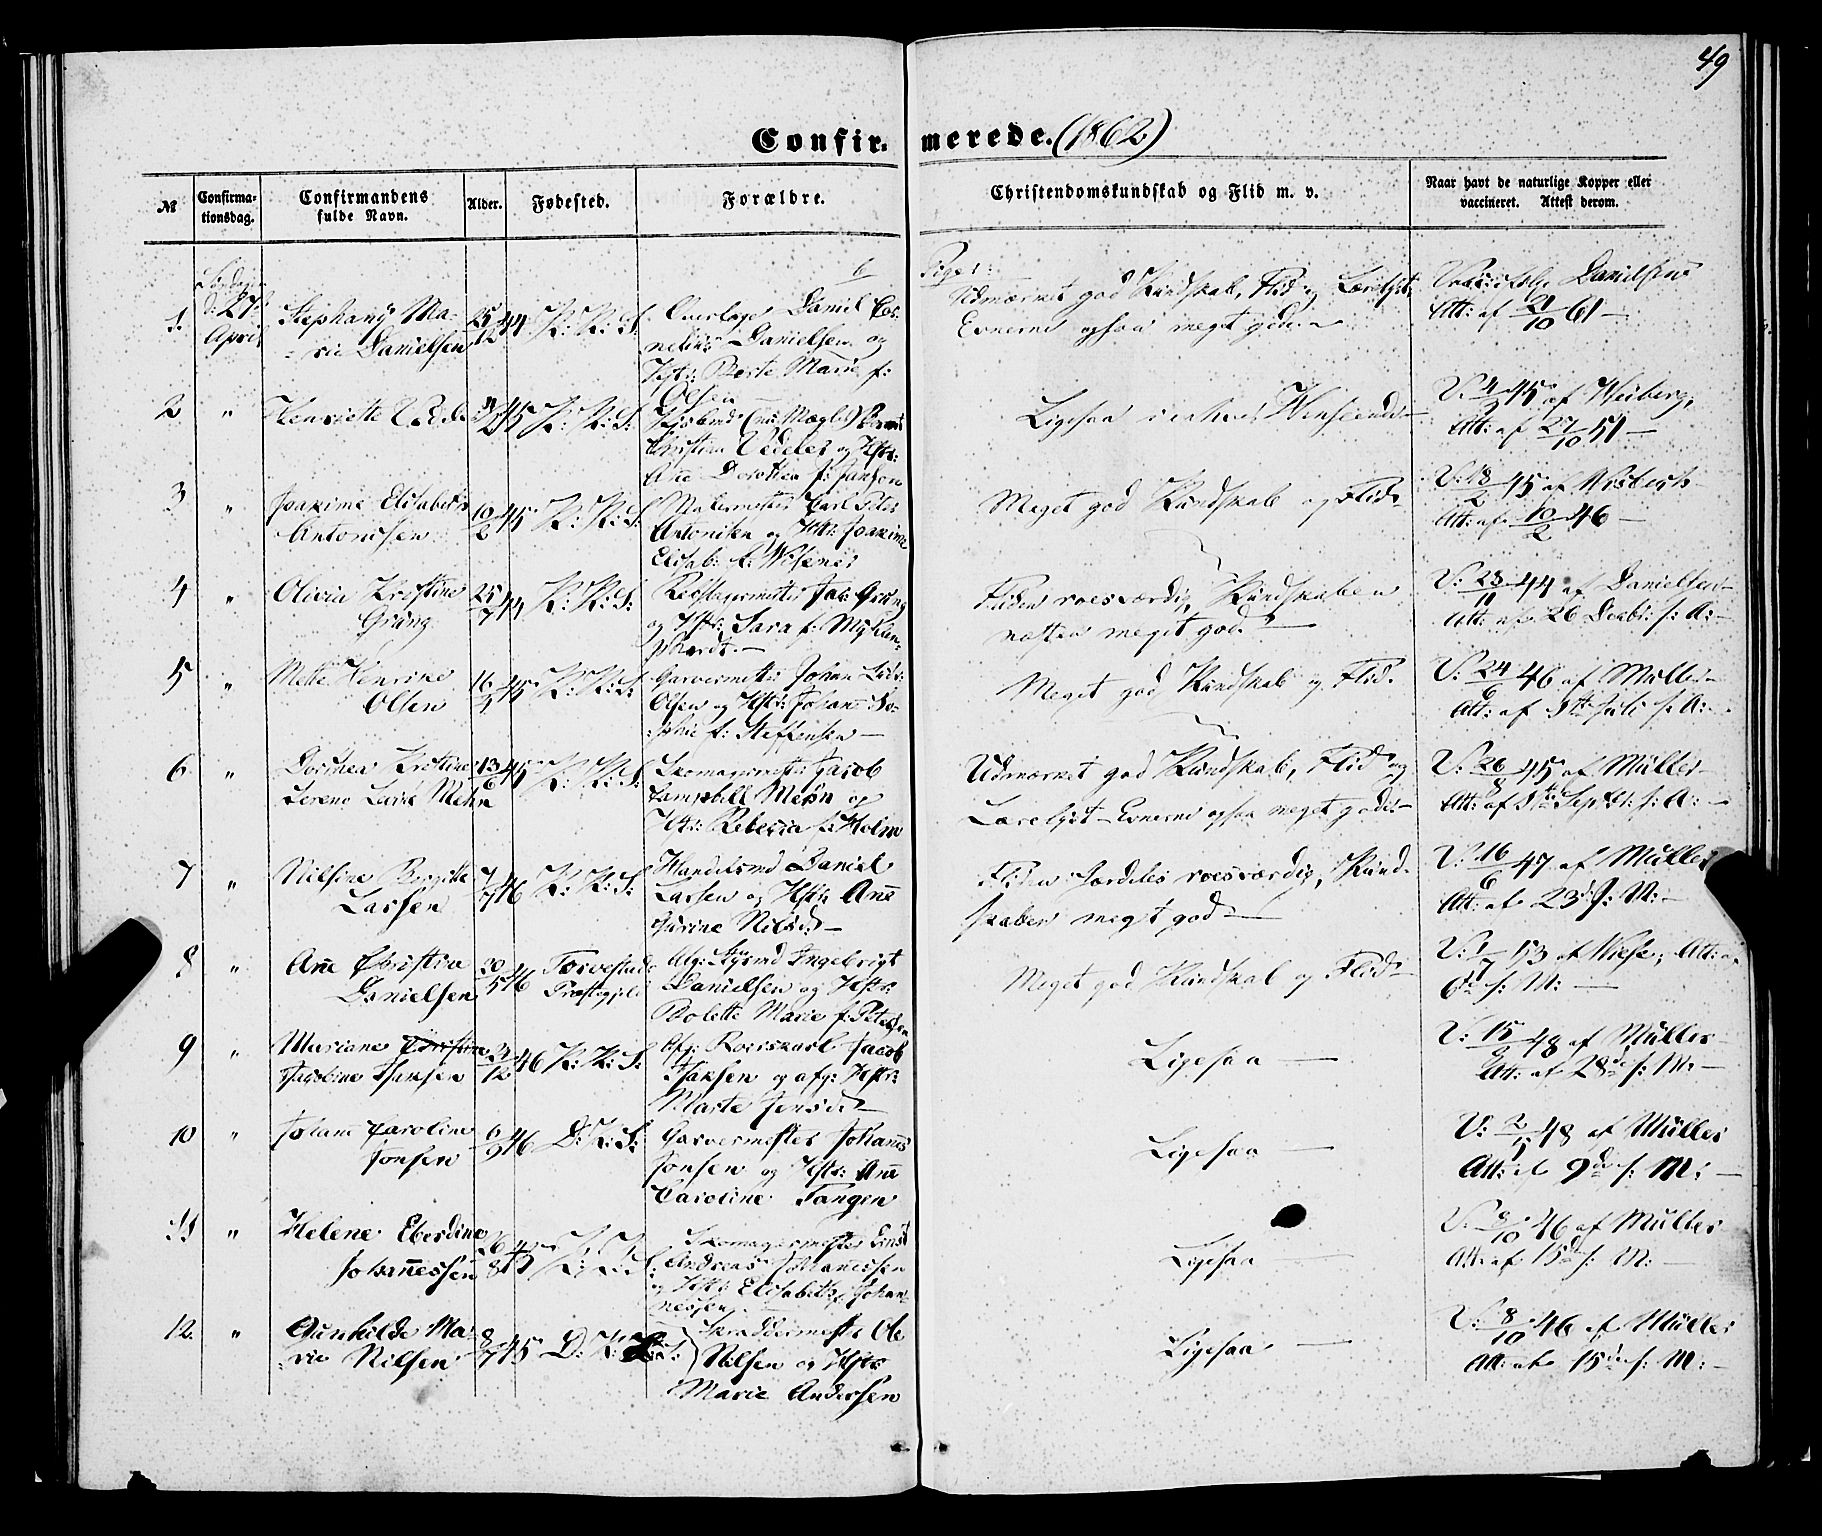 49
Confirmerede. (1862)
№ Confirmationsdag. Confirmandens fulde Navn. Alder. Fødested. Forældre. Christendomskundskab og Flid m. v. Naar havt de naturlige Kopper eller vaccineret. Attest derom.
Piger:
1. Søndagen d: 27 April Stephany Marie Danielsen 25/12 44 K: K: S:
Overlæge Daniel Cornelius Danielsen og
Hstr: Berte Marie f: Olsen
Udmærket god Kundskab, Flid og Lærelyst,
Evnerne ogsaa meget gode. –
Danielsen
Att: af 21/10 61 –
2 " Henriette Vedeler 45 K: K: S:
Christian Vedeler og Hstr:
Ane Dorothea f: Jansen
Ligesaa i enhver Henseende –
V: 4/9 45 af Heiberg;
Att: af 27/10 51 –
3 " Joakime Elisabeth Antonisen 10/2 45 K: K: S:
Malermester Carl Peter
Antonisen og Hstr: Joakime
Elisab: f: Wesenes
Meget god Kundskab og Flid –
V: 18/2 45 af Wisbech
Att: af 10/2 46 –
4 " Olivia Kristine Grung 25/7 44 K: K: S:
Rebslagermester Jak: Grung
og Hstr: Sara f: Myhlenphordt. –
Fliden roesværdig, Kundskaben
næsten meget god –
V: 23/11 44 af Danielsen –
Att: af 26 Decbr: s: A: –
5 " Mette Henrike Olsen 16/3 45 K: K: S:
Garvermester Johan Ludv:
Olsen og Hstr: Johane Sophie f: Steffensen –
Meget god Kundskab og Flid.
V: 24/6 46 af Müller –
Att: af 8de Juli s: A: –
6. " Dorthea Kristine Lerene Lavrë Mehn 13/6 45 K: K: S:
Skomagermester Jacob
Campbell Mehn og
Hstr: Rebecca f: Holm
Udmærket god Kundskab, Flid og
Lærelyst – Evnerne ogsaa meget gode –
V: 26/8 45 af Müller –
Att: af 8de Septbr: s: A: –
7 " Nilsine Bergitte Larsen 7/7 46 K: K: S:
Handelsmd Daniel
Larsen og Hstr: Ane
Gurine Nilsd: –
Fliden særdeles roesværdig, Kundskaben meget god –
V: 16/6 47 af Müller
Att: af 23de s: M: –
8 " Ane Christine Danielsen 30/5 46 Torvestads Præstegjeld
Afg: Ingebrigt
Danielsen og Hstr:
Bolette Marie f: Petersen
Meget god Kundskab og Flid –
V: 1/7 53 af Wiese; Att: af
6de s: M: –
9 " Mariane Christine Jacobine Isaksen 31/12 46 K: K: S:
Afg: Roerskarl Jacob
Isaksen og afg: Hstr:
Marte Jensd: –
Ligesaa –
V: 15/9 48 af Müller –
Att: af 28de s: M: –
10 " Johane Caroline Jonsen 6/9 46 D: K: S:
Garvermester Johannes
Jonsen og Hstr: Ane
Caroline Tangen
Ligesaa –
V: 2/11 48 af Müller
Att: af 9de s: M: –
11 " Helene Eberdine Johannessen 26/8 45 K: K: S:
Skomagermester Ernst
Andreas Johannessen
og Hstr: Elisabeth f: Johannessen. –
Ligesaa –
V: 8/10 46 af Müller
Att: af 15de s: M: –
12. " Gunhilde Marie Nilsen 8/7 45 D: K: S:
Skræddermester Ole
Nilsen og Hstr:
Marie Andersen
Ligesaa –
V: 8/10 46 af Müller
Att: af 15de s: M: –